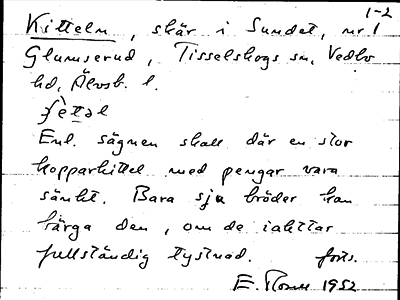 1-2
Kitteln, skär i Sundet, nr 1
Glumserud, Tisselskogs sn, Vedbo
hd, Älvsb. l.
Enl. sägnen skall där en stor
kopparkittel med pengar vara
sänkt. Bara sju bröder kan
bärga den, om de iakttar
fullständig tystnad. forts.
E. 1952